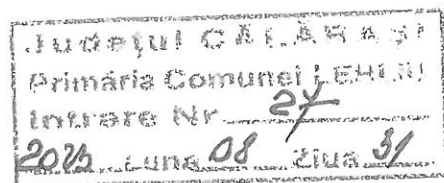 Județul CĂLĂRAȘI
Primăria Comunei LEHLIU
Intrare Nr. 27
Luna 08 Ziua 31